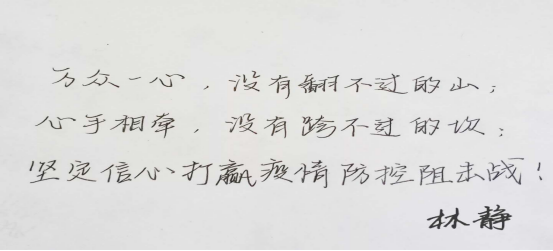 万众一心，没有翻不过的山；
心手相牵，没有跨不过的坎；
坚定信心打赢疫情防控阻击战！
林静